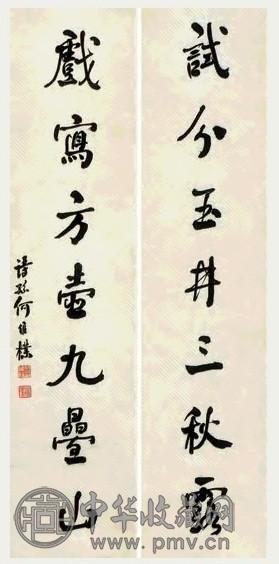 試分玉井三秋露
戲寫方壺九疊山
詩孫何維樸
中华收藏网
www.pmv.cn